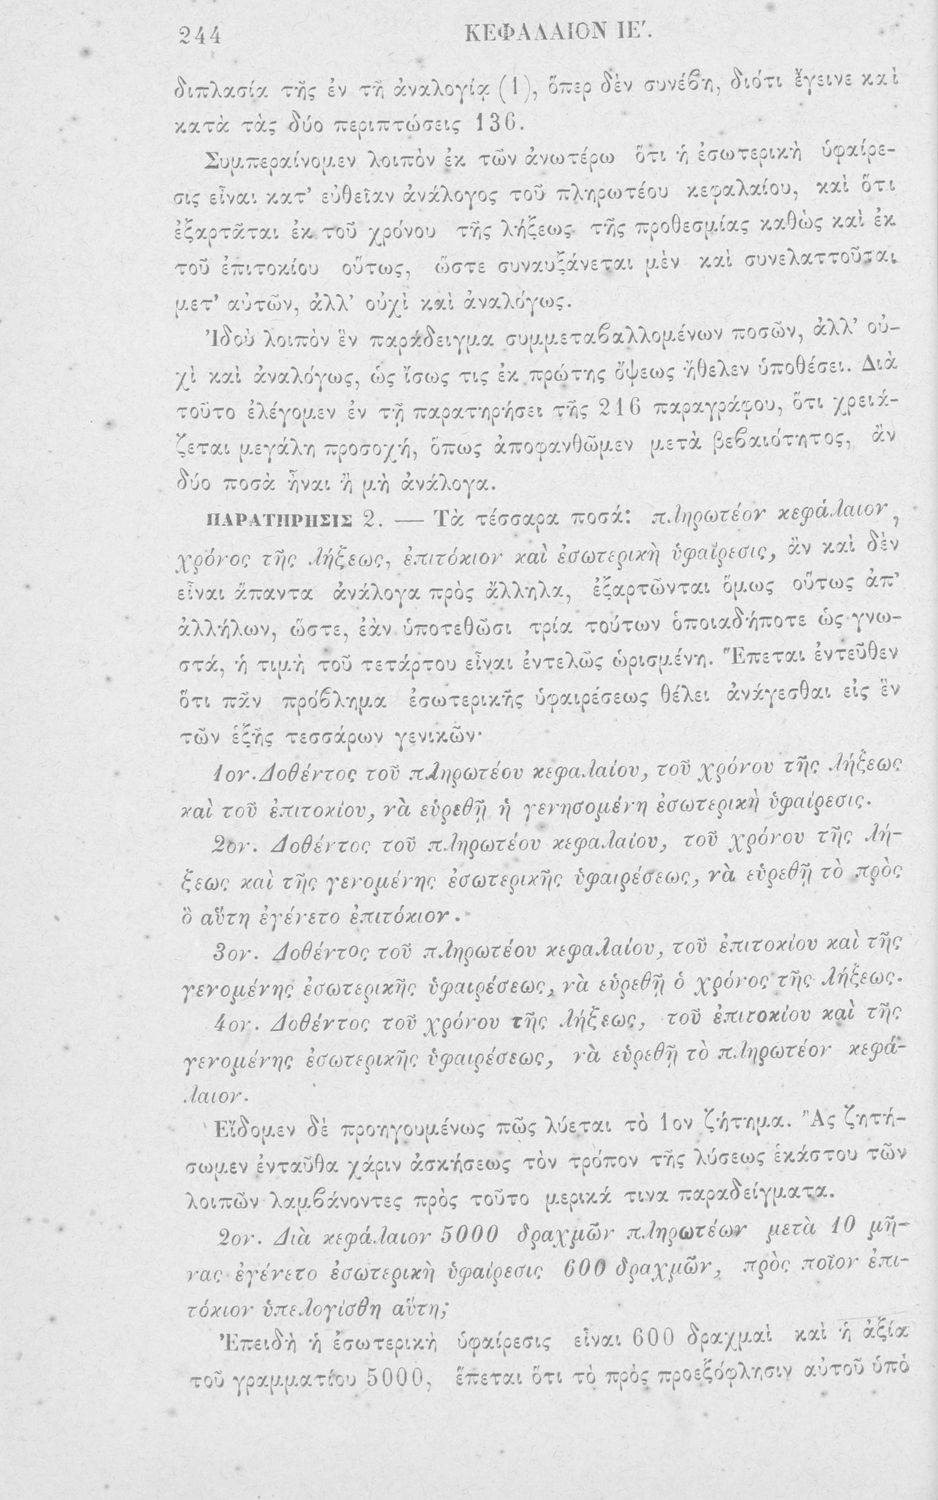 244 ΚΕΦΑΛΑΙΟΝ ΙΕ'.
διπλασία τῆς ἐν τῇ ἀναλογίᾳ (1), ὅπερ δὲν συνέβη, διότι ἔγεινε καὶ
κατὰ τὰς δύο περιπτώσεις 136.
Συμπεραίνομεν λοιπὸν ἐκ τῶν ἀνωτέρω ὅτι ἡ ἐσωτερικὴ ὑφαίρε-
σις εἶναι κατ' εὐθεῖαν ἀνάλογος τοῦ πληρωτέου κεφαλαίου, καὶ ὅτι
ἐξαρτᾶται ἐκ τοῦ χρόνου τῆς λήξεως τῆς προθεσμίας καθὼς καὶ ἐκ
τοῦ ἐπιτοκίου οὕτως, ὥστε συναυξάνεται μὲν καὶ συνελαττοῦται
μετ' αὐτῶν, ἀλλ' οὐχὶ καὶ ἀναλόγως.
Ἰδοὺ λοιπὸν ἓν παράδειγμα συμμεταβαλλομένων ποσῶν, ἀλλ' οὐ-
χὶ καὶ ἀναλόγως, ὡς ἴσως τις ἐκ πρώτης ὄψεως ἤθελεν ὑποθέσει. Διὰ
τοῦτο ἐλέγομεν ἐν τῇ παρατηρήσει τῆς 216 παραγράφου, ὅτι χρειά-
ζεται μεγάλη προσοχή, ὅπως ἀποφανθῶμεν μετὰ βεβαιότητος, ἂν
δύο ποσὰ ἦναι ἢ μὴ ἀνάλογα.
ΠΑΡΑΤΗΡΗΣΙΣ 2. — Τὰ τέσσαρα ποσά: πληρωτέον κεφάλαιον,
χρόνος τῆς λήξεως, ἐπιτόκιον καὶ ἐσωτερικὴ ὑφαίρεσις, ἂν καὶ δὲν
εἶναι ἅπαντα ἀνάλογα πρὸς ἄλληλα, ἐξαρτῶνται ὅμως οὕτως ἀπ'
ἀλλήλων, ὥστε, ἐὰν ὑποτεθῶσι τρία τούτων ὁποιαδήποτε ὡς γνω-
στά, ἡ τιμὴ τοῦ τετάρτου εἶναι ἐντελῶς ὡρισμένη. Ἕπεται ἐντεῦθεν
ὅτι πᾶν πρόβλημα ἐσωτερικῆς ὑφαιρέσεως θέλει ἀνάγεσθαι εἰς ἓν
τῶν ἑξῆς τεσσάρων γενικῶν·
1ον. Δοθέντος τοῦ πληρωτέου κεφαλαίου, τοῦ χρόνου τῆς λήξεως
καὶ τοῦ ἐπιτοκίου, νὰ εὑρεθῇ ἡ γενησομένη ἐσωτερικὴ ὑφαίρεσις.
2ον. Δοθέντος τοῦ πληρωτέου κεφαλαίου, τοῦ χρόνου τῆς λή-
ξεως καὶ τῆς γενομένης ἐσωτερικῆς ὑφαιρέσεως, νὰ εὑρεθῇ τὸ πρὸς
ὃ αὕτη ἐγένετο ἐπιτόκιον.
3ον. Δοθέντος τοῦ πληρωτέου κεφαλαίου, τοῦ ἐπιτοκίου καὶ τῆς
γενομένης ἐσωτερικῆς ὑφαιρέσεως, νὰ εὑρεθῇ ὁ χρόνος τῆς λήξεως.
4ον. Δοθέντος τοῦ χρόνου τῆς λήξεως, τοῦ ἐπιτοκίου καὶ τῆς
γενομένης ἐσωτερικῆς ὑφαιρέσεως, νὰ εὑρεθῇ τὸ πληρωτέον κεφά-
λαιον.
Εἴδομεν δὲ προηγουμένως πῶς λύεται τὸ 1ον ζήτημα. Ἂς ζητή-
σωμεν ἐνταῦθα χάριν ἀσκήσεως τὸν τρόπον τῆς λύσεως ἑκάστου τῶν
λοιπῶν λαμβάνοντες πρὸς τοῦτο μερικά τινα παραδείγματα.
2ον. Διὰ κεφάλαιον 5000 δραχμῶν πληρωτέων μετὰ 10 μῆ-
νας ἐγένετο ἐσωτερικὴ ὑφαίρεσις 600 δραχμῶν, πρὸς ποῖον ἐπι-
τόκιον ὑπελογίσθη αὕτη;
Ἐπειδὴ ἡ ἐσωτερικὴ ὑφαίρεσις εἶναι 600 δραχμαὶ καὶ ἡ ἀξία
τοῦ γραμματίου 5000, ἕπεται ὅτι τὸ πρὸς προεξόφλησιν αὐτοῦ ὑπὸ